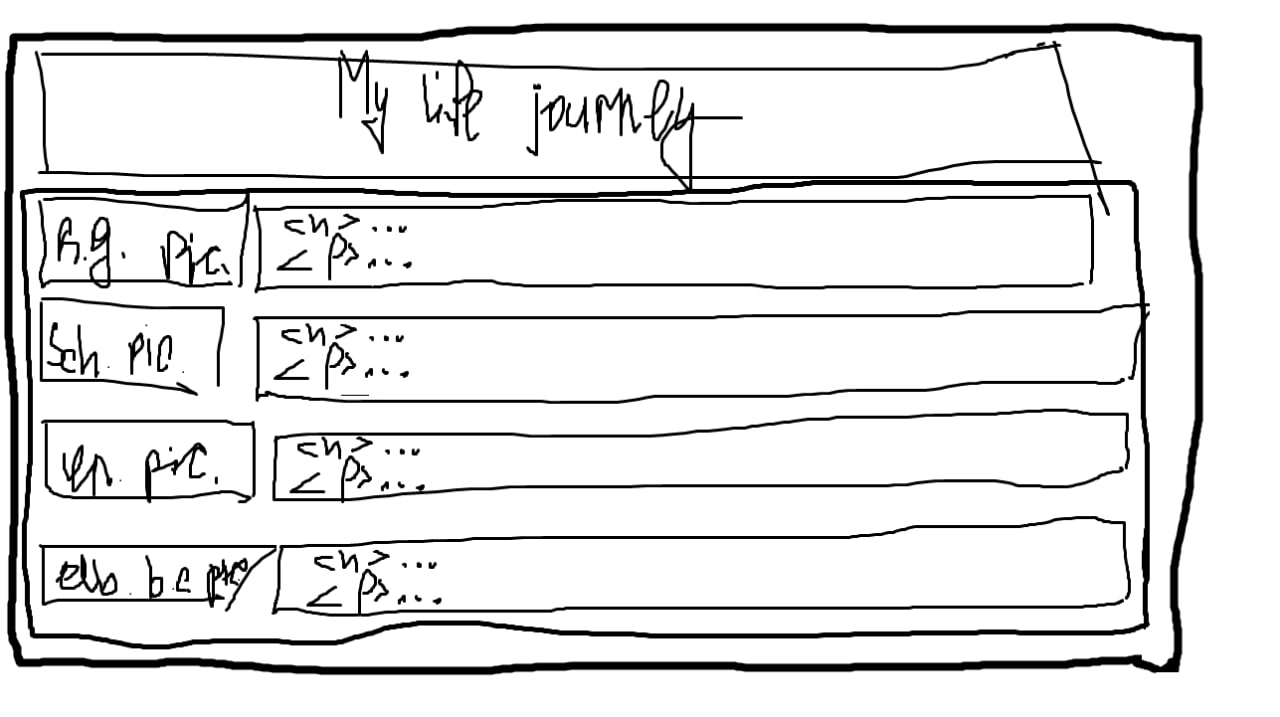 My life journey
pic.
<h> ...
<p> ...
Sch. pic.
<h> ...
<p> ...
pic.
<h> ...
<p> ...
b.c pic
<h> ...
<p> ...